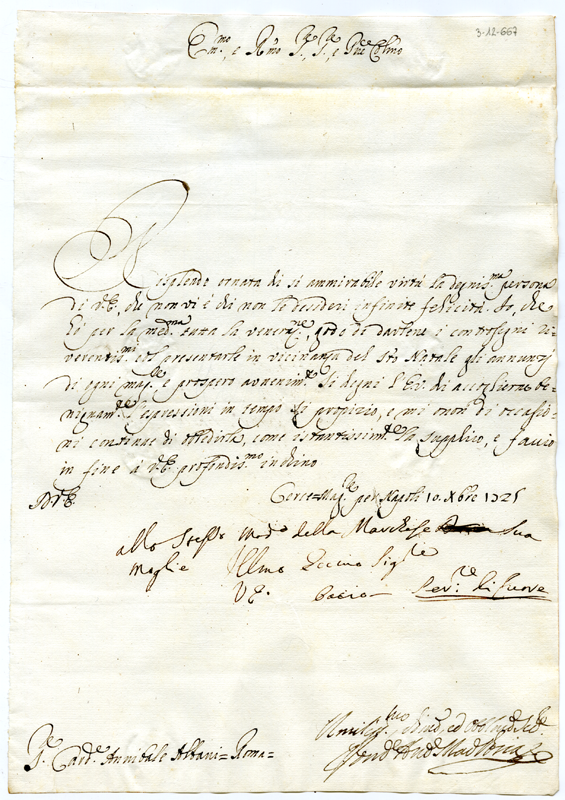 3-12-667
Em.mo, e Rmo Sig.re, Sig.re, e Pne Colmo
Risplende ornata di si ammirabile virtù la degnis.ma persona
di V.E., che non vi è chi non le desideri infinite felicità. Io, che
hò per la med.ma tutta la veneraz.ne, godo de darlene i contrasegni ri-
verentis.mi col presentarle in vicinanza del Sto Natale gli annunzj
di ogni mag.re e prospero avvenim.to. Si degni l'E.V. di accogliere be-
nignam.te l'espressioni in tempo si propizio, e mi onori di occasio-
ni continue di obbedirla, come istantissim.te la supplico, e faccio
in fine à V.E. profondis.mo inchino
D.V.E. Cerce=Mag.re per Napoli 10. Xbre 1725
allo stesso modo della Marchese sua
Moglie Illmo Eccmo Sig.re
V.E. bacio Ser.re di Cuore
S.r Card.e Annibale Albani = Roma =
Umiliss.mo